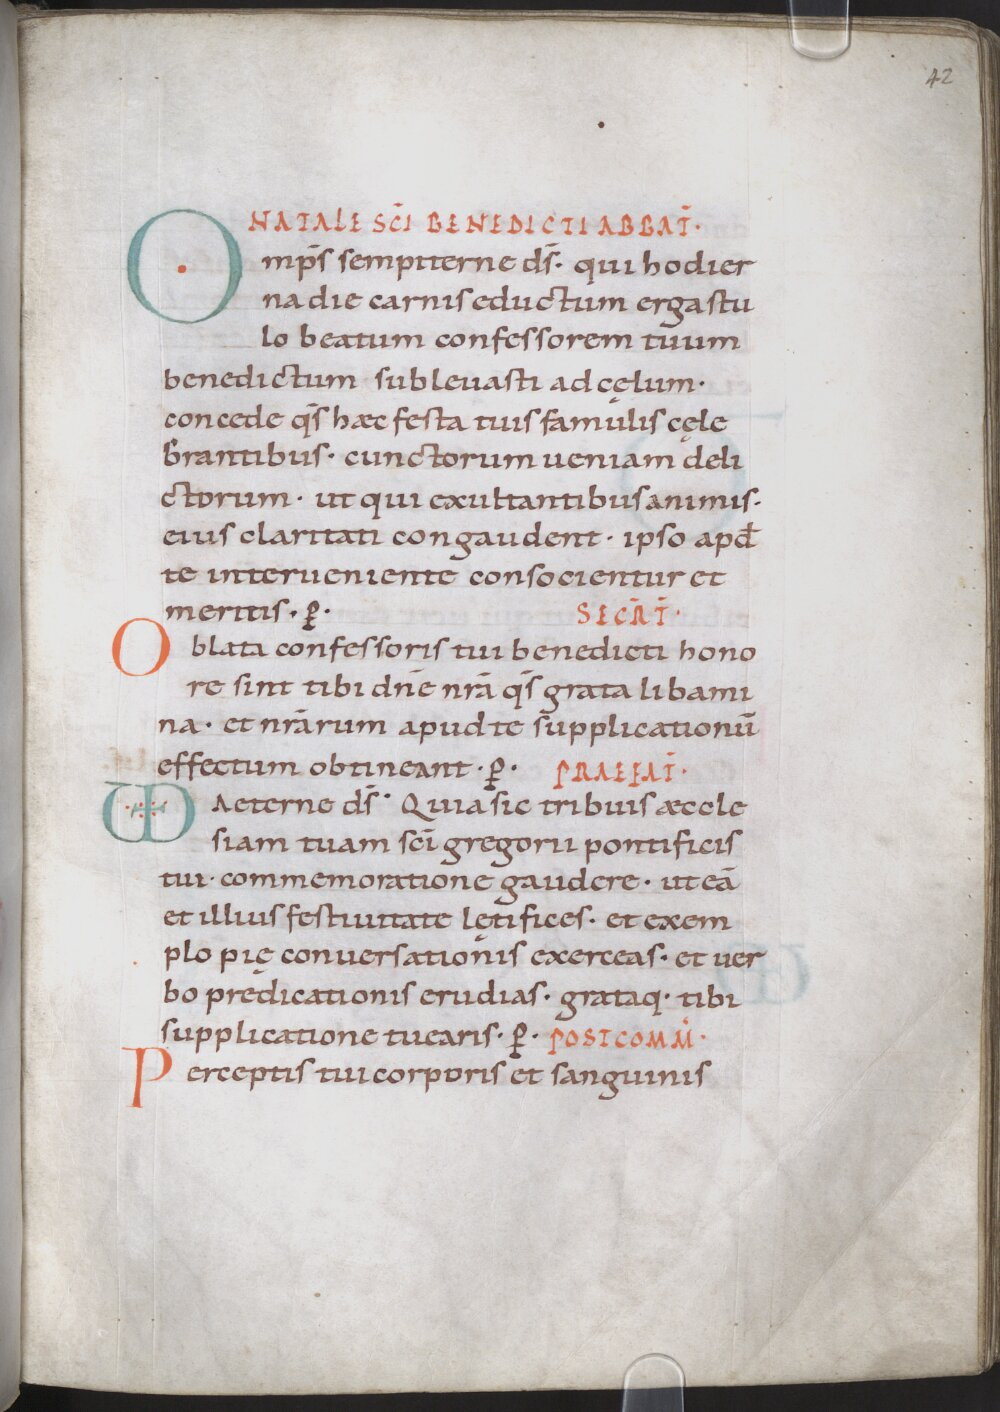 42
NATALE SC̄I BENEDICTI ABBAT̄·
Omps̄ sempiterne ds̄· qui hodier
na die carnis eductum ergastu
lo beatum confessorem tuum
benedictum subleuasti ad cęlum·
concede qs̄ hæc festa tuis famulis cęle
brantibus· cunctorum ueniam deli
ctorum· ut qui exultantibus animis·
eius claritati congaudent· ipso apd̄
te interueniente consocientur et
meritis· ꝑ· SECRĀT̄·
Oblata confessoris tui benedicti hono
re sint tibi dn̄e nrā qs̄ grata libami
na· et nrārum apud te supplicationū
effectum obtineant· ꝑ· PRAEFAT̄·
VD Aeterne ds̄· Quia sic tribuis æccle
siam tuam sc̄i gregorii pontificis
tui· commemoratione gaudere· ut eā
et illius festiuitate lętifices· et exem
plo pię conuersationis exerceas· et uer
bo prędicationis erudias· grataq· tibi
supplicatione tuearis· ꝑ· POSTCOMM̄·
Perceptis tui corporis et sanguinis